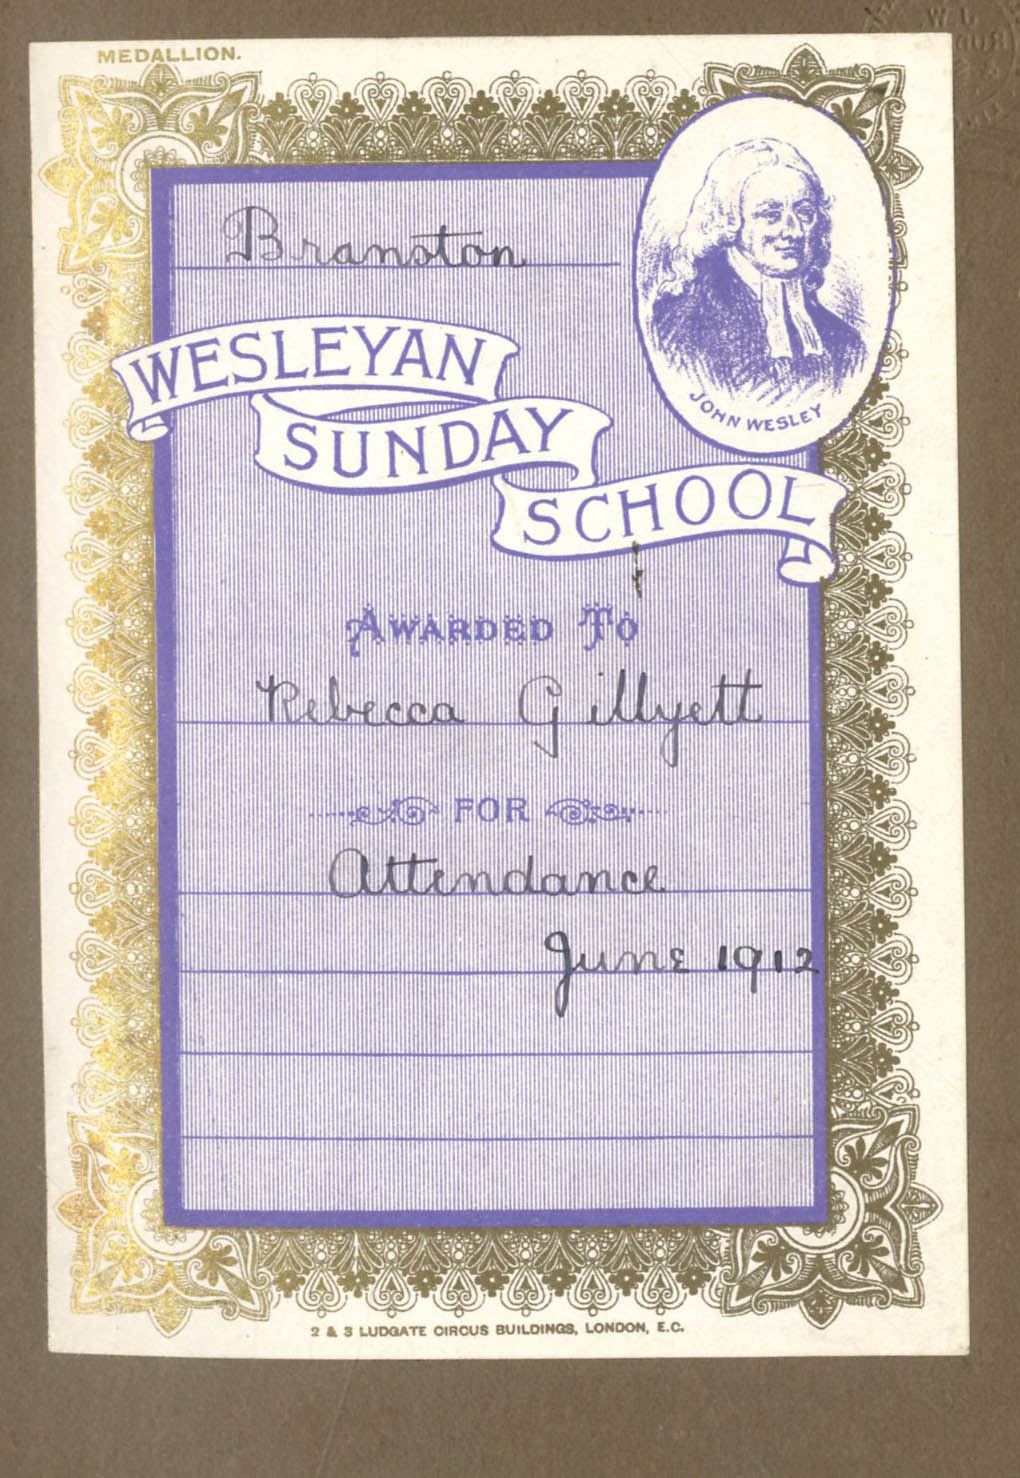 MEDALLION.
Branston
WESLEYAN
SUNDAY
SCHOOL
JOHN WESLEY
AWARDED TO
Rebecca Gillyett
FOR
Attendance
June 1912
2 & 3 LUDGATE CIRCUS BUILDINGS, LONDON, E.C.